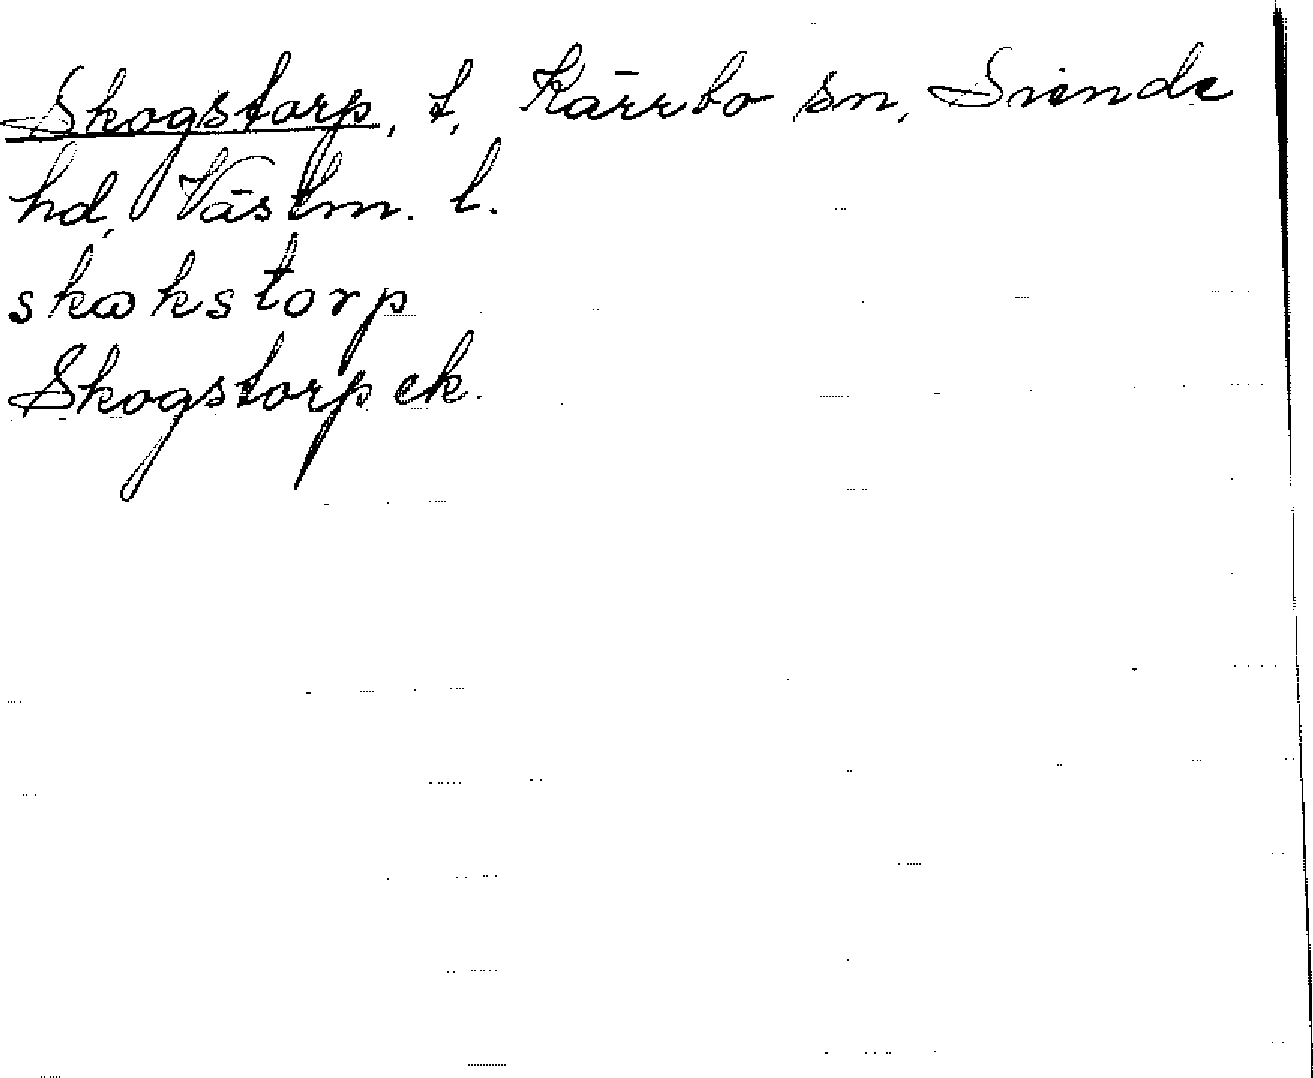 Skogstorp, t, Kärrbo sn, Siende
hd, Västm. l.
skωkstorp
Skogstorp ek.